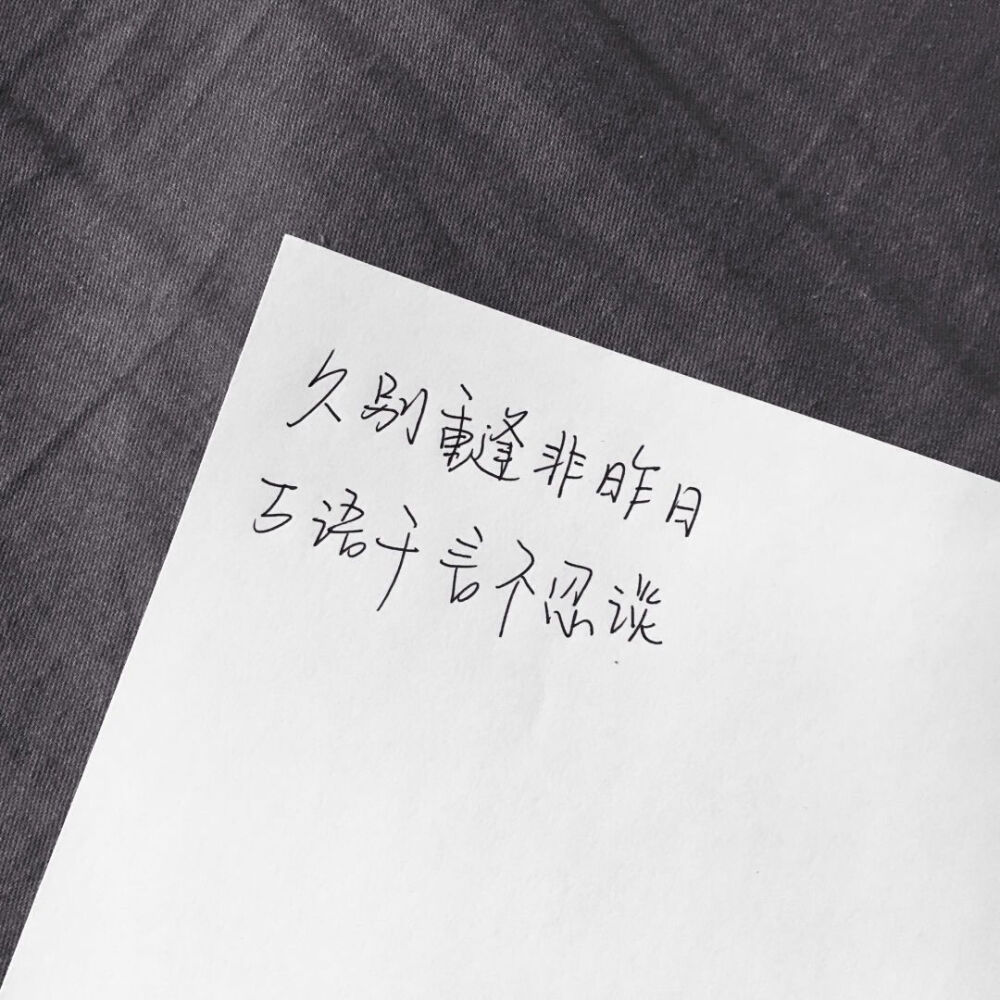 久别重逢非昨日
万语千言不忍谈